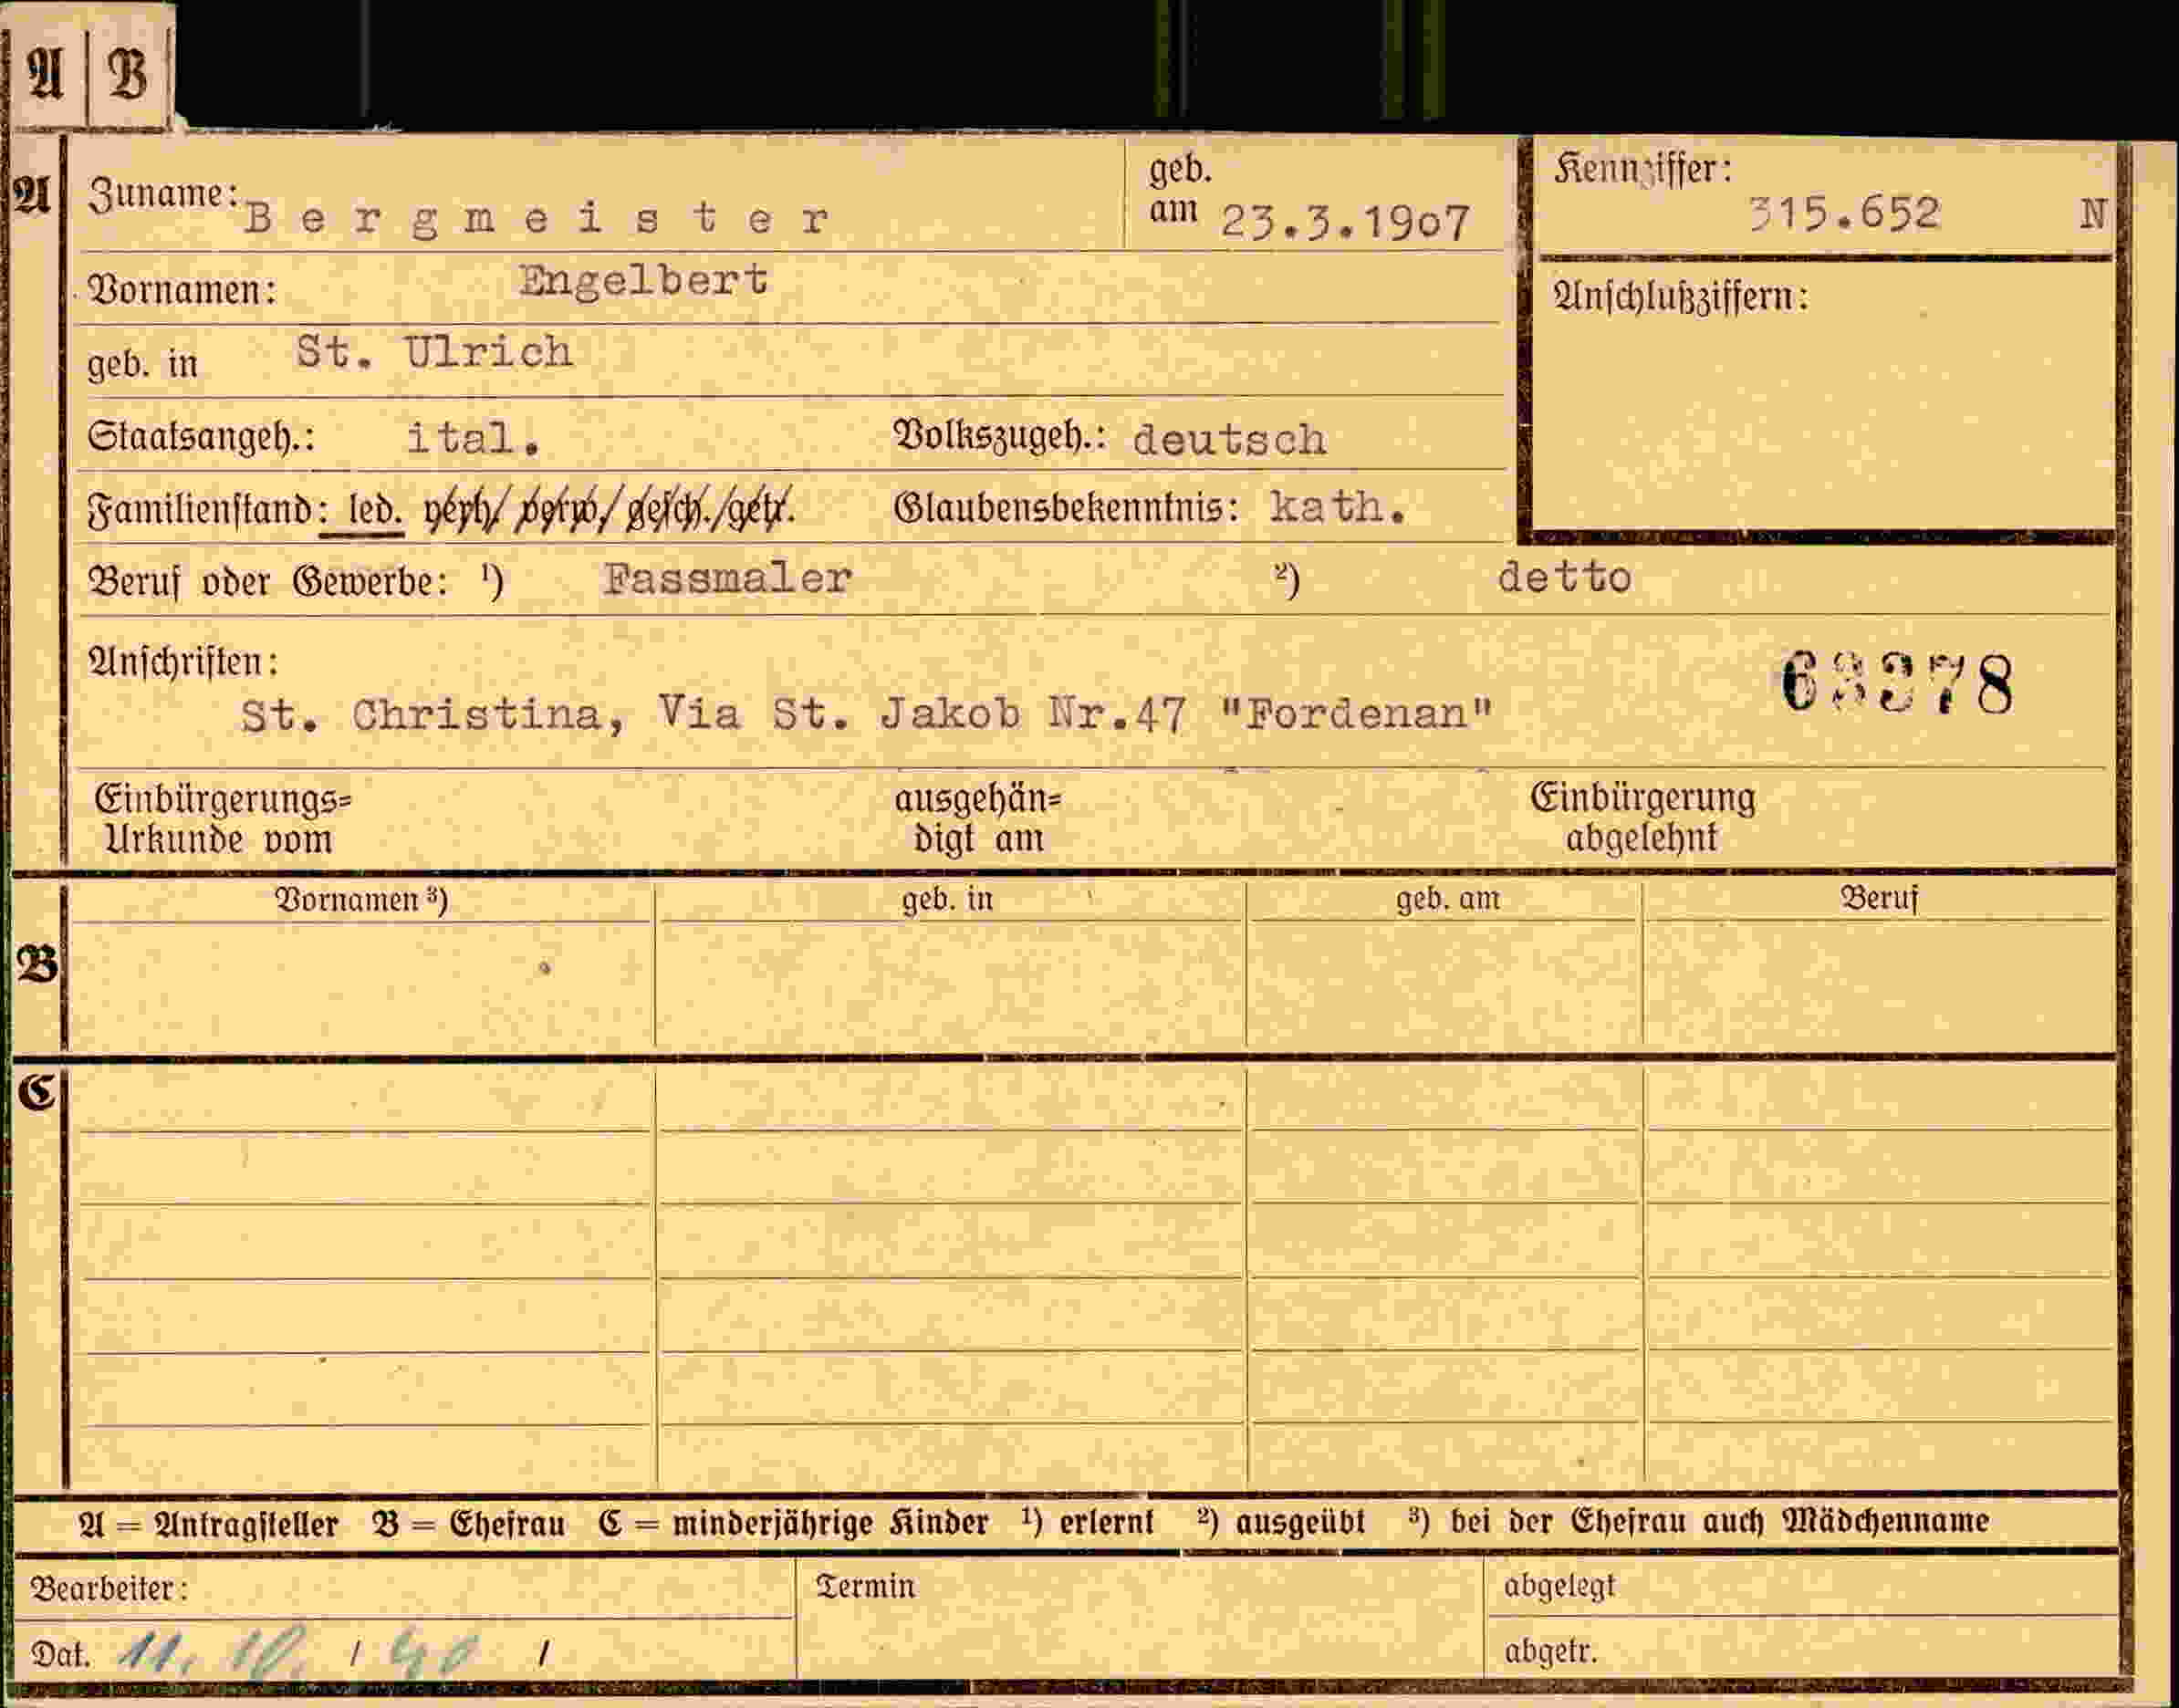 A B
A
Zuname: Bergmeister geb. am 23.3.1907 Kennziffer: 315.652 N
Vornamen: Engelbert
Anschlußziffern:
geb. in St. Ulrich
Staatsangeh.: ital. Volkszugeh.: deutsch
Familienstand: led. verh/ verw/ gesch./getr. Glaubensbekenntnis: kath.
Beruf oder Gewerbe: ¹) Fassmaler ²) detto
Anschriften:
63378
St. Christina, Via St. Jakob Nr.47 "Fordenan"
Einbürgerungs= ausgehän= Einbürgerung
Urkunde vom digt am abgelehnt
Vornamen ³) geb. in geb. am Beruf
B
C
A = Antragsteller B = Ehefrau C = minderjährige Kinder ¹) erlernt ²) ausgeübt ³) bei der Ehefrau auch Mädchenname
Bearbeiter: Termin abgelegt
Dat. 11. 10. / 40 / abgetr.